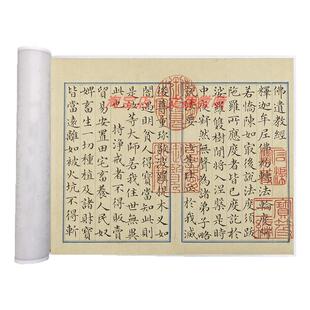 佛遺教經
釋迦牟尼佛初轉法輪度阿
若憍陳如最後說法度須跋
陀羅所應度者皆已度訖於
娑羅雙樹間將入涅槃是時
中夜寂然無聲為諸弟子略
說法要 汝等比丘於我滅
後當尊重珍敬波羅提木叉如
闇遇明貧人得寶當知此則
是汝等大師若我住世無異
此也 持淨戒者不得販賣
貿易安置田宅畜養人民奴
婢畜生一切種植及諸財寶
皆當遠離如避火坑不得斬